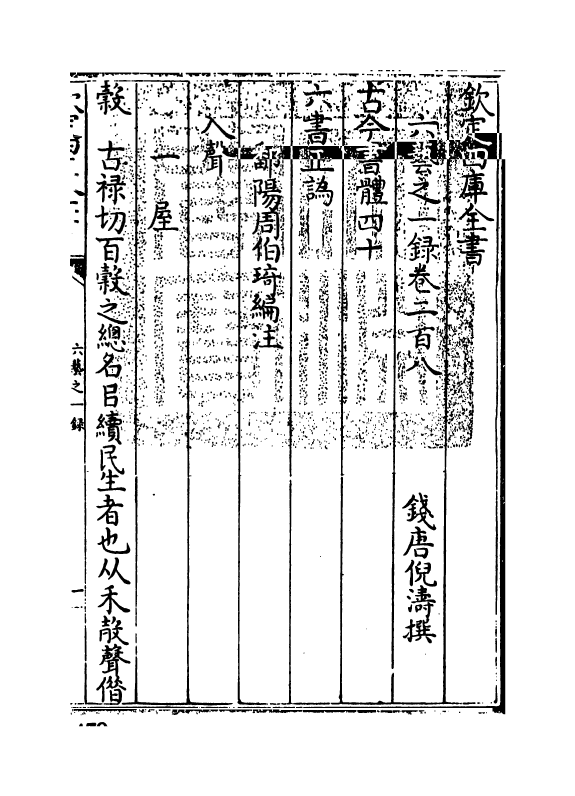 欽定四庫全書
六藝之一録卷二百八
錢唐倪濤撰
古今書體四十
六書正譌
鄱陽周伯琦編注
入聲
一屋
榖 古禄切百榖之總名㠯續民生者也从禾㱿聲偕
六藝之一録
一